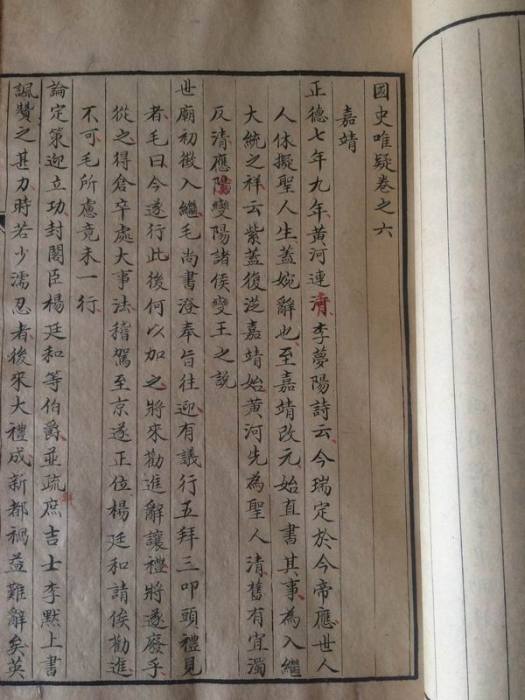 國史唯疑卷之六
嘉靖
正德七年九年黃河連清李夢陽詩云今瑞定於今帝應世人
人休擬聖人生蓋婉辭也至嘉靖改元始直書其事為入繼
大統之祥云紫蓋復從嘉靖始黃河先為聖人清舊有宜濁
反清應陽變陽諸侯變王之說
世廟初徵入繼毛尚書澄奉旨往迎有議行五拜三叩頭禮見
者毛曰今遂行此後何以加之將來勸進辭讓禮將遂廢乎
從之得倉卒處大事法稽駕至京遂正位楊廷和請俟勸進
不可毛所慮竟未一行
論定策迎立功封閣臣楊廷和等伯爵並疏庶吉士李默上書
諷贊之甚力時若少濡忍者後來大禮成新都禍益難辭矣英